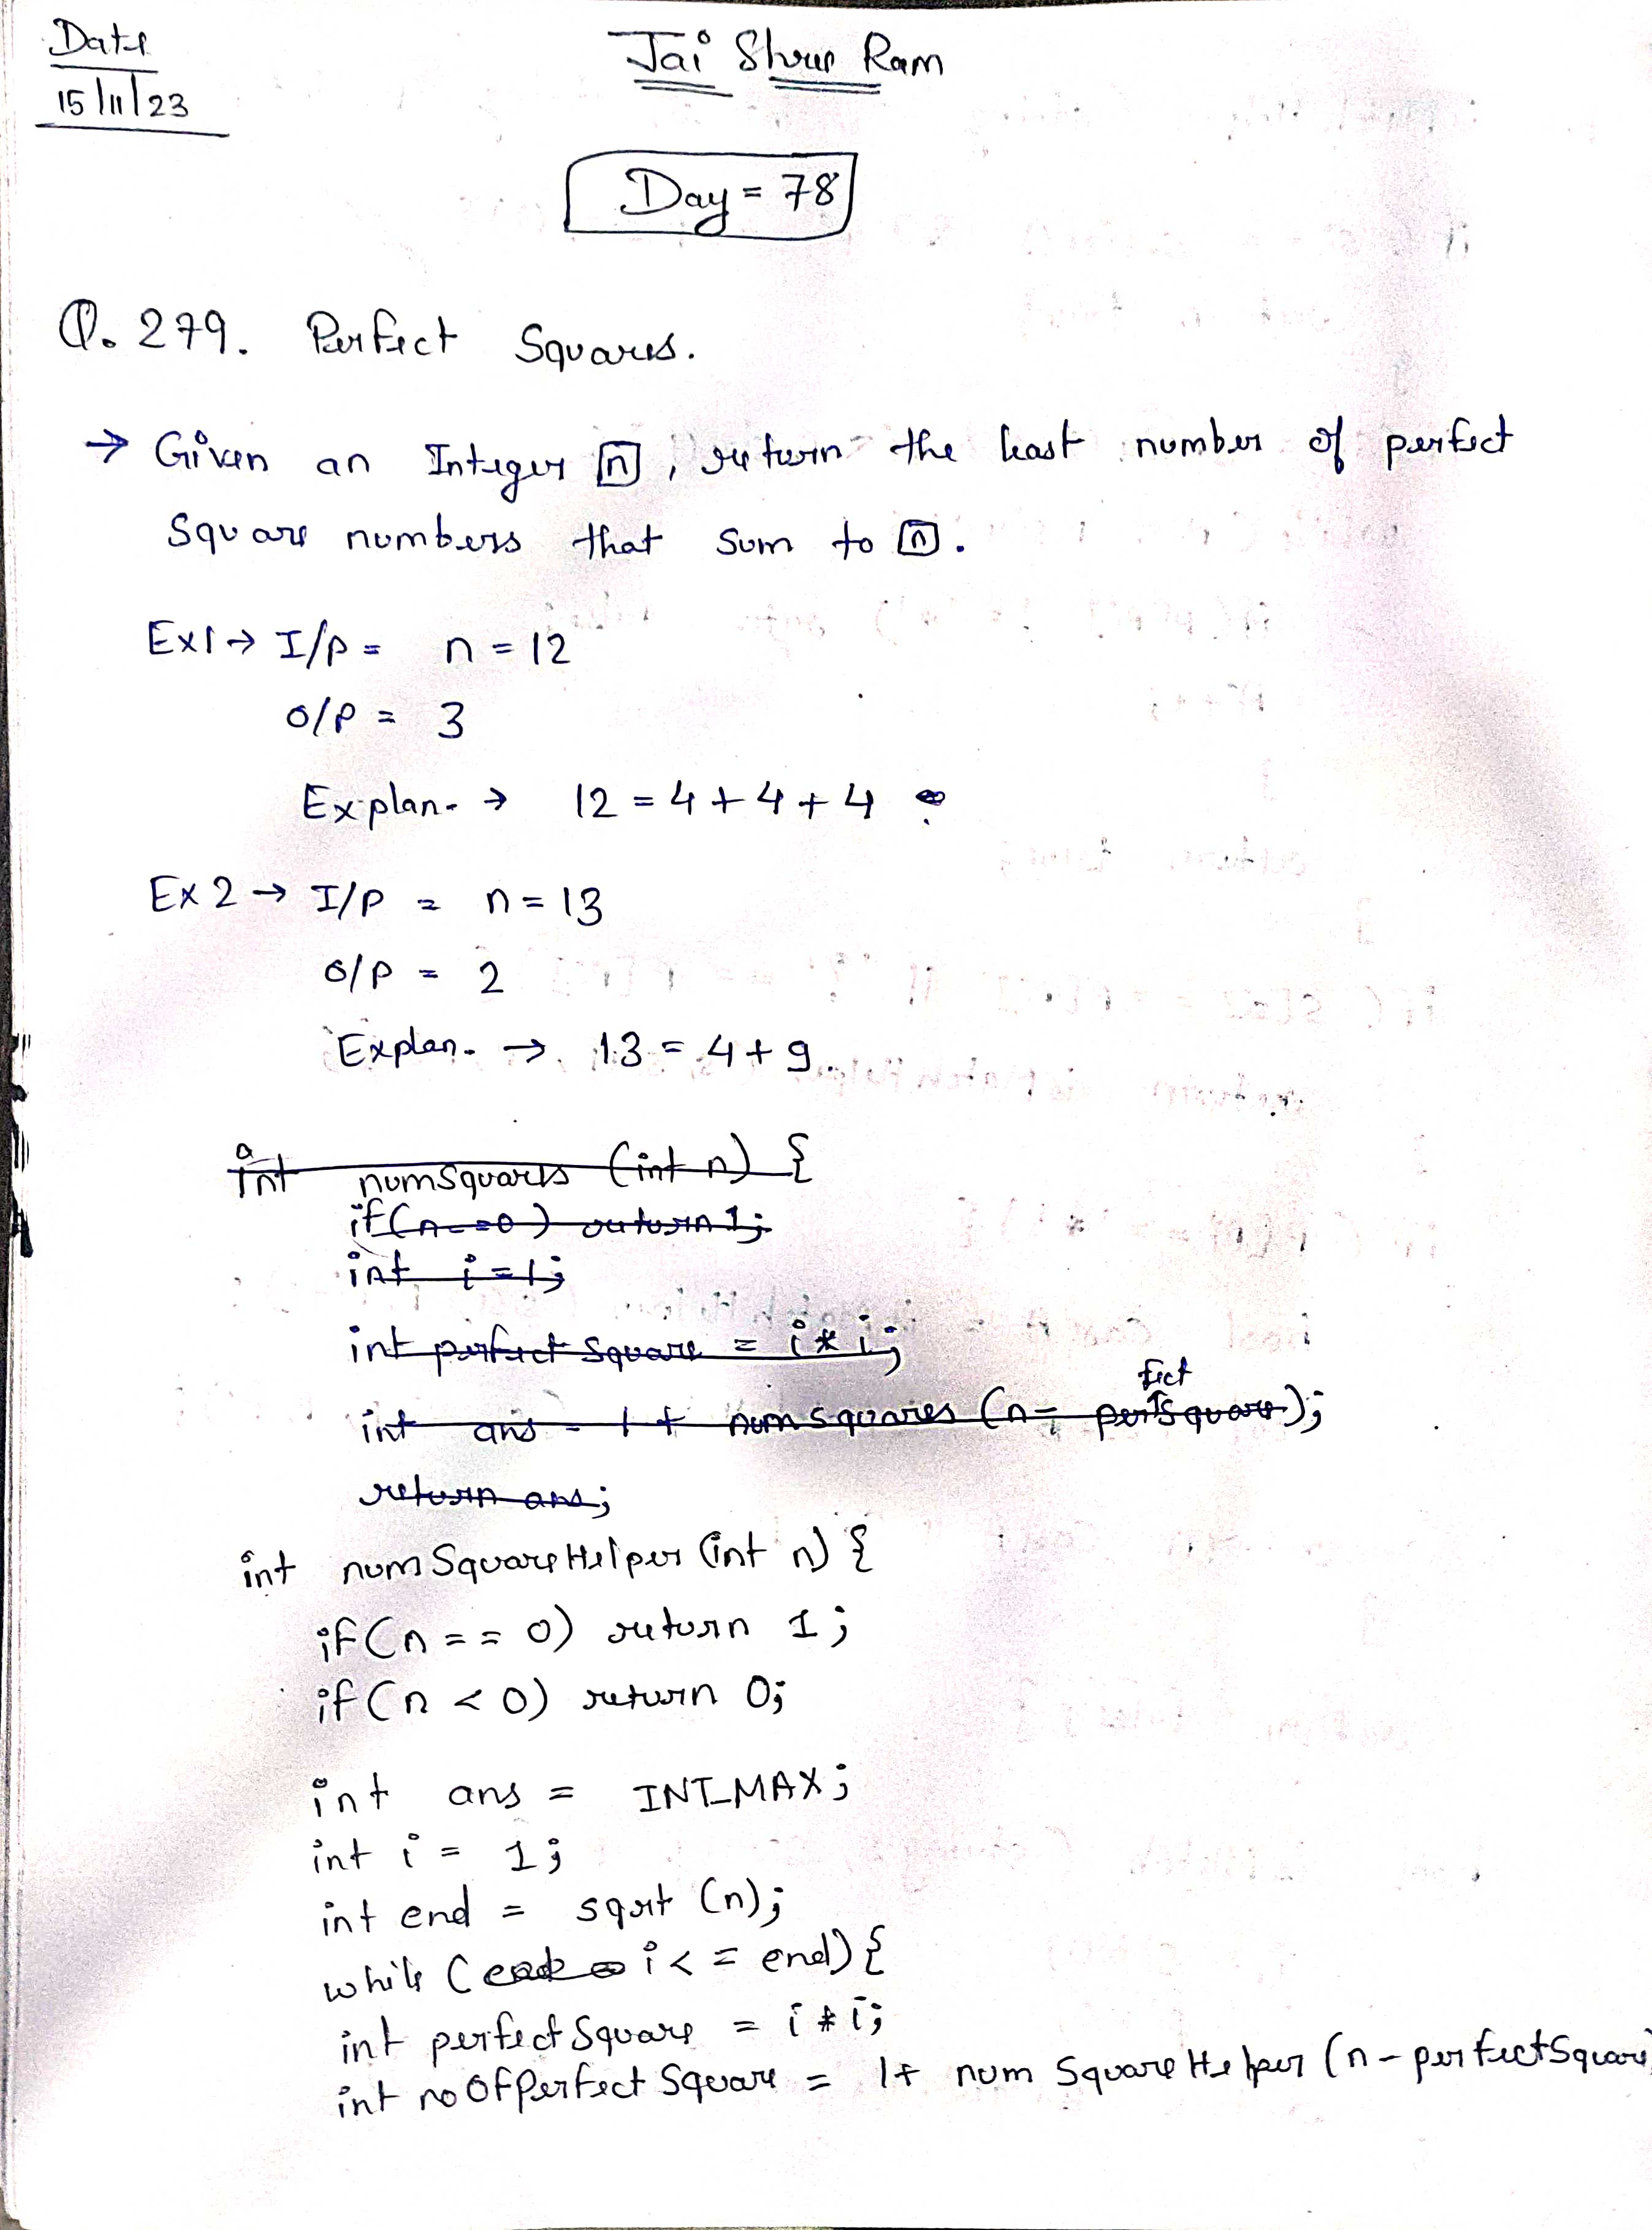 Date
15/11/23
Jai Shree Ram
Day = 78
Q. 279. Perfect Squares.
→ Given an Integer n, return the least number of perfect
Square numbers that sum to n.
Ex1 → I/P = n = 12
O/P = 3
Explan. → 12 = 4 + 4 + 4
Ex 2 → I/P = n = 13
O/P = 2
Explan. → 13 = 4 + 9.
int numSquares (int n) {
if(n==0) return 1;
int i=1;
int perfectSquare = i*i;
int ans = 1 + numSquares (n- perfectSquare);
return ans;
int numSquareHelper (int n) {
if(n == 0) return 1;
if(n < 0) return 0;
int ans = INT_MAX;
int i = 1;
int end = sqrt (n);
while ( i <= end) {
int perfectSquare = i * i;
int noOfPerfectSquare = 1+ numSquareHelper (n - perfectSquare)